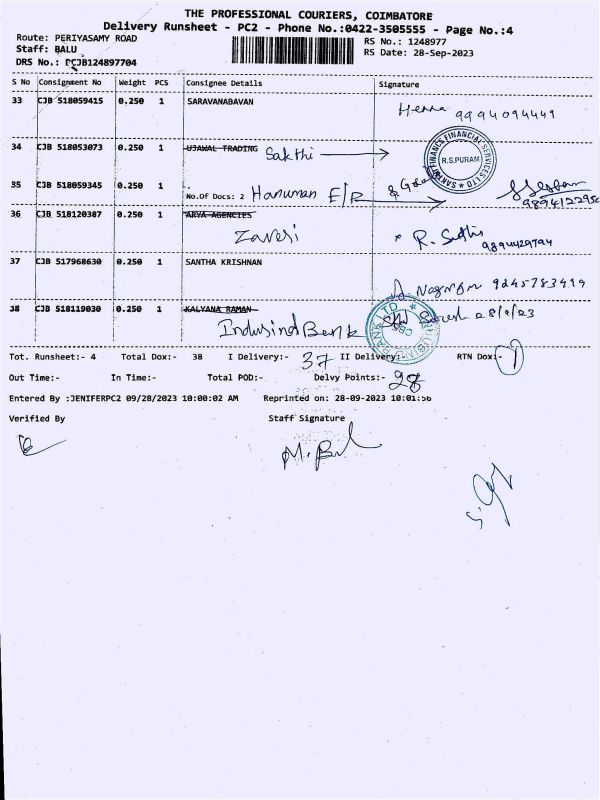 THE PROFESSIONAL COURIERS, COIMBATORE
Delivery Runsheet - PC2 - Phone No.:0422-3505555 - Page No.:4
Route: PERIYASAMY ROAD
RS No.: 1248977
Staff: BALU
RS Date: 28-Sep-2023
DRS No.: PCJB124897704
S No Consignment No Weight PCS Consignee Details Signature
33 CJB 518059415 0.250 1 SARAVANABAVAN
Hema 9994094449
34 CJB 518053073 0.250 1 UJAWAL TRADING Sakthi
FINANCE FINANCIAL SERVICES LTD
R.S.PURAM
35 CJB 518059345 0.250 1 No.Of Docs: 2 Hanuman E/R
36 CJB 518120387 0.250 1 ARYA AGENCIES
Zaveri
R. 9894429794
37 CJB 517968630 0.250 1 SANTHA KRISHNAN
9245783499
38 CJB 518119030 0.250 1 KALYANA RAMAN
Indusind Bank
Suresh 28/9/23
BANK LTD
CBE
Tot. Runsheet:- 4 Total Dox:- 38 I Delivery:- 37 II Delivery:- RTN Dox:- 1
Out Time:- In Time:- Total POD:- Delvy Points:- 28
Entered By :JENIFERPC2 09/28/2023 10:00:02 AM Reprinted on: 28-09-2023 10:01:56
Verified By Staff Signature